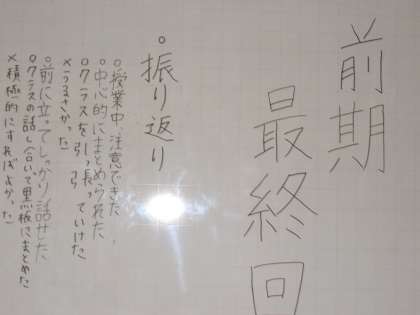 前期
最終回
○振り返り
○授業中、注意できた
○中心的にまとめられた
○クラスを引っ長っていけた
×うるさかった
○前に立ってしっかり話せた
○クラスの話し合いで黒板にまとめた
×積極的にすればよかった